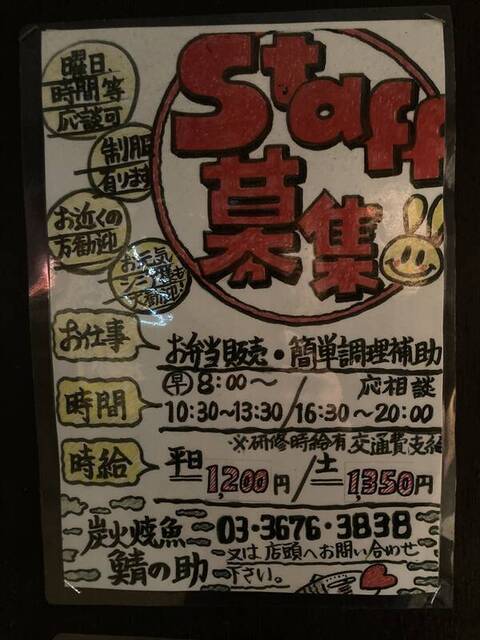 Staff
募集
曜日
時間等
応談可
制服
有ります
お近くの
方歓迎
お元気
シニア様も
大歓迎!
お仕事
お弁当販売・簡単調理補助
時間
早 8:00〜 応相談
10:30〜13:30/16:30〜20:00
※研修時給有 交通費支給
時給
平日 1,200円/土 1,350円
炭火焼魚
鯖の助
03・3676・3838
又は店頭へお問い合わせ
下さい。